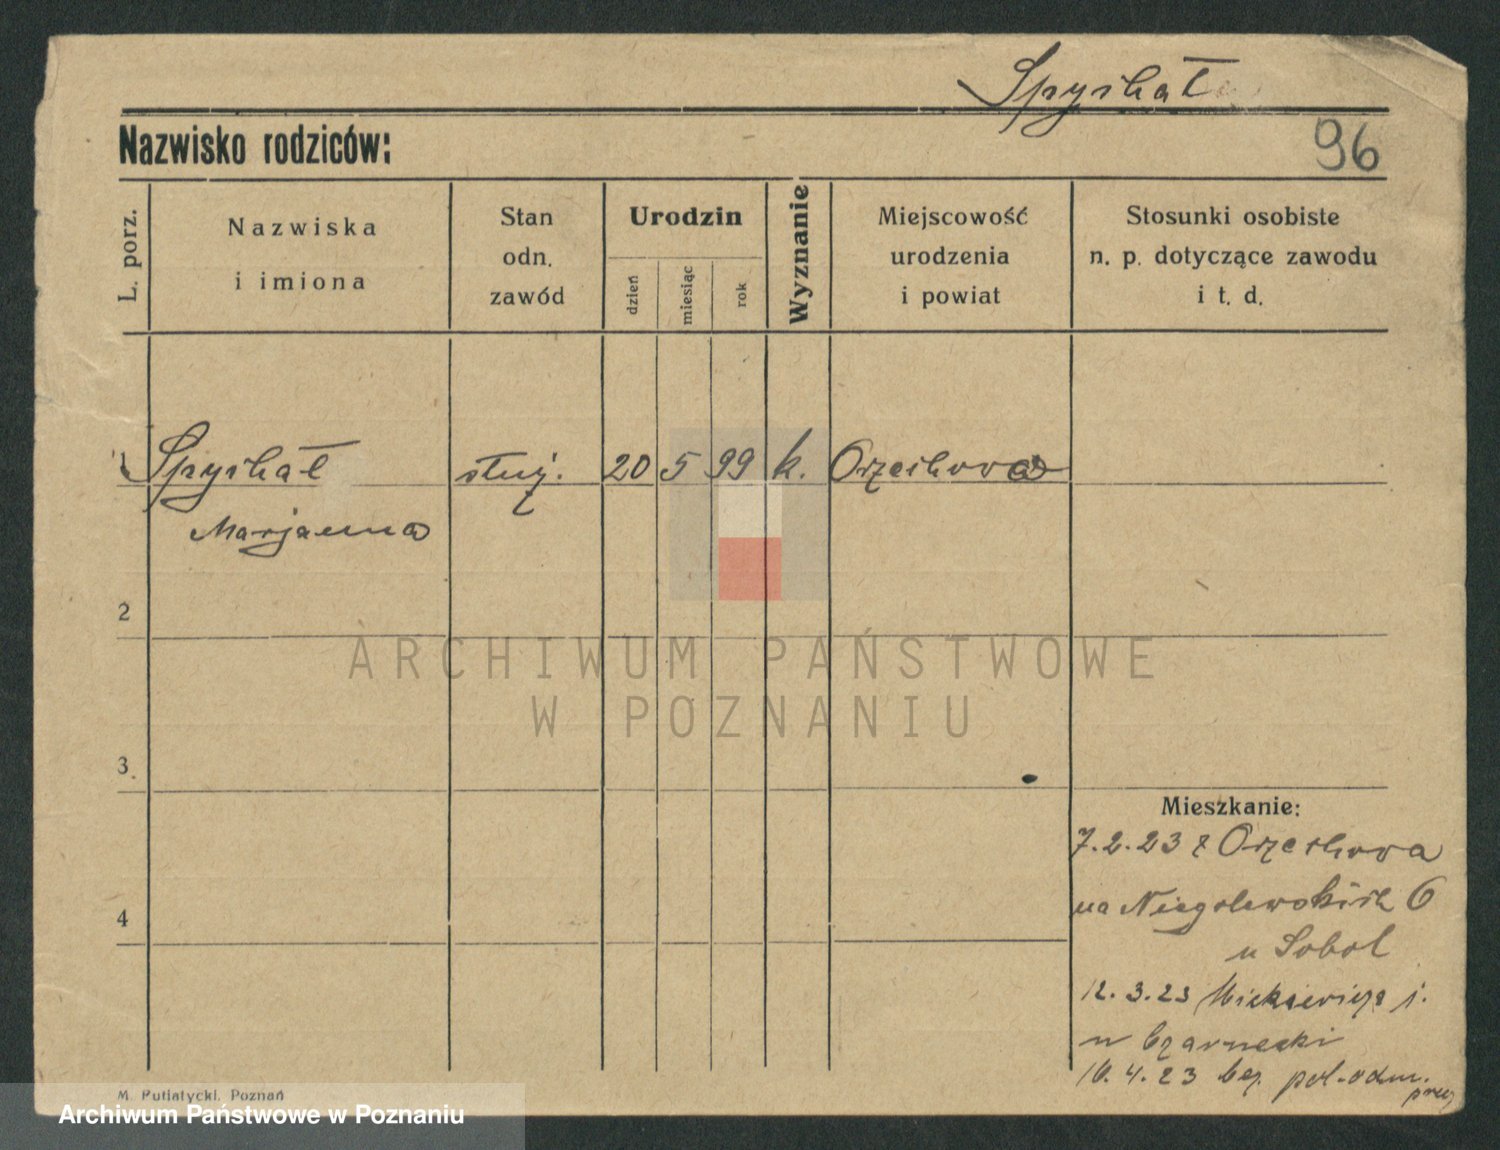 Spychał
Nazwisko rodziców:
96
L. porz.
Nazwiska
i imiona
Stan
odn.
zawód
Urodzin
dzień
miesiąc
rok
Wyznanie
Miejscowość
urodzenia
i powiat
Stosunki osobiste
n. p. dotyczące zawodu
i t. d.
1 Spychał służ. 20 5 99 k. Orzechowo
Marjanna
2
3
4
ARCHIWUM PAŃSTWOWE
W POZNANIU
Mieszkanie:
7.2.23 z Orzechowa
na Niegolewskich 6
u Sobol
12.3.23 Mickiewicza
u Czarnecki
16.4.23 bez pol. odm.
M. Putiatycki, Poznań
Archiwum Państwowe w Poznaniu